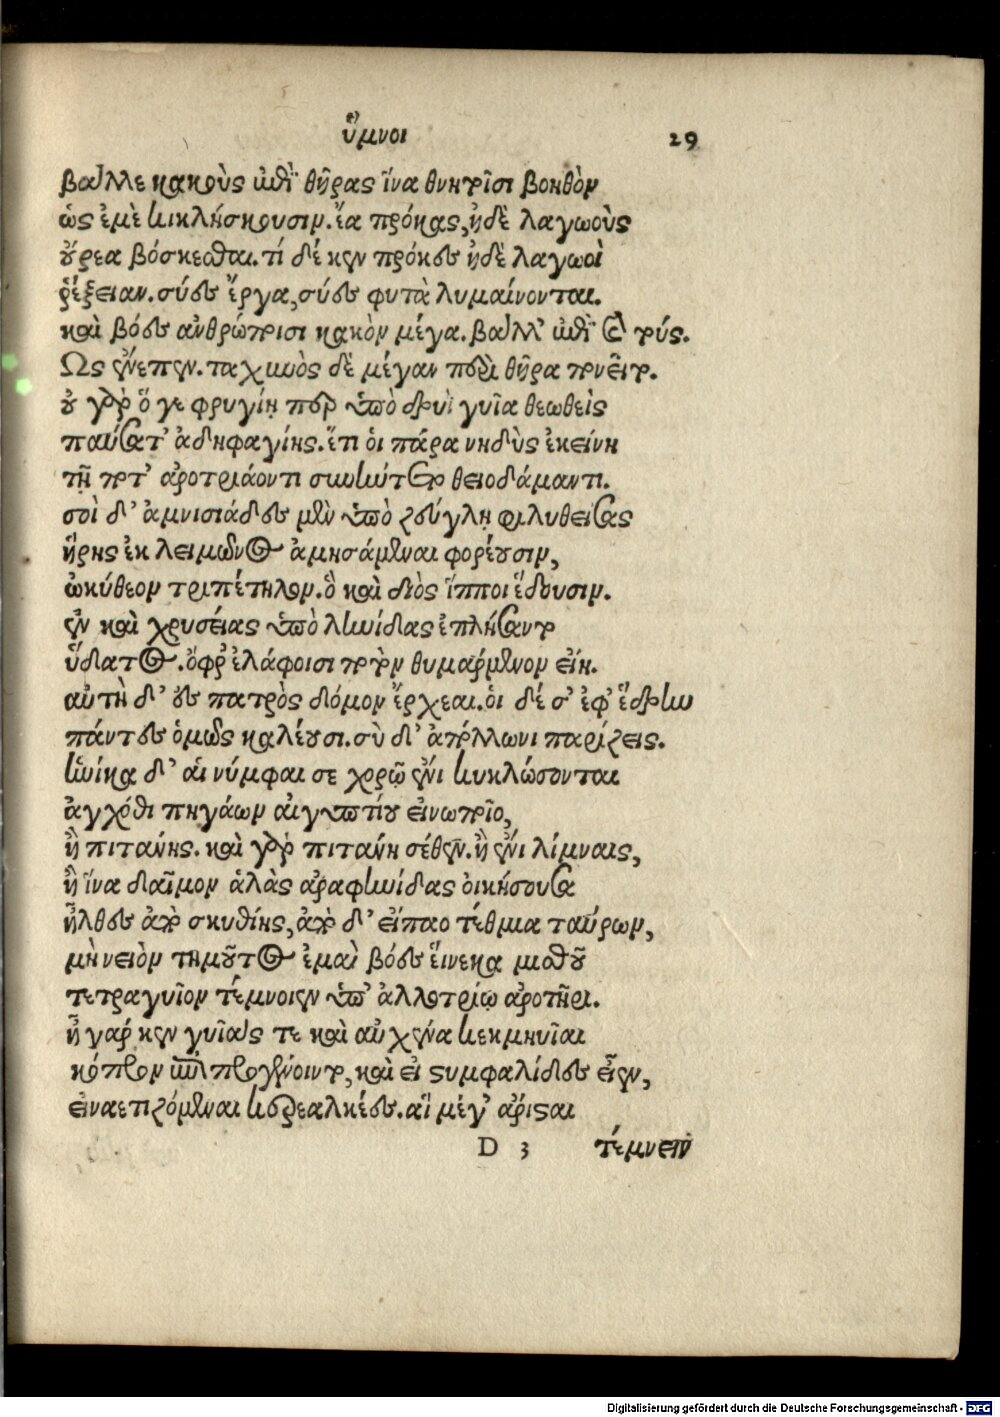 ὕμνοι 29
βάλλε κακοὺς ἐπὶ θῆρας ἵνα θνητοῖσι βοηθὸν
ὡς ἐμὲ κικλήσκουσιν. ἔα πρόκας, ἠδὲ λαγωοὺς
οὔρεα βόσκεσθαι. τί δέ κεν πρόκες ἠδὲ λαγωοὶ
ῥέξειαν. σύες ἔργα, σύες φυτὰ λυμαίνονται.
καὶ βόες ἀνθρώποισι κακὸν μέγα. βάλλ' ἐπὶ καὶ τούς.
Ως ἔνεπεν. ταχινὸς δὲ μέγαν περὶ θῆρα πονεῖτο.
οὐ γὰρ ὅ γε φρυγίῃ περ ὑπὸ δρυῒ γυῖα θεωθεὶς
παύσατ' ἀδηφαγίης. ἔτι οἱ πάρα νηδὺς ἐκείνη
τῇ ποτ' ἀροτριάοντι συνήντετο θειοδάμαντι.
σοὶ δ' ἀμνισιάδες μὲν ὑπὸ ζεύγλῃ φιλυθείσας
ἥρης ἐκ λειμῶνος ἀμησάμεναι φορέουσιν,
ὠκύθεον τριπέτηλον. ὃ καὶ διὸς ἵπποι ἔδουσιν.
ἐν καὶ χρυσείας ὑπὸ ληνίδας ἐπλήσαντο
ὕδατος. ὄφρ' ἐλάφοισι ποτὸν θυμάρμενον εἴη.
αὐτὴ δ' ἐς πατρὸς δόμον ἔρχεαι. οἱ δέ σ' ἐφ' ἕδρην
πάντες ὁμῶς καλέουσι. σὺ δ' ἀπόλλωνι παρίζεις.
ἡνίκα δ' αἱ νύμφαι σε χορῷ ἔνι κυκλώσονται
ἀγχόθι πηγάων αἰγυπτίου εἰνωποῖο,
ἢ πιτάνης. καὶ γὰρ πιτάνη σέθεν. ἢ ἐνὶ λίμναις,
ἢ ἵνα δαῖμον ἁλὰς ἀραφηνίδας οἰκήσουσα
ἦλθες ἀπὸ σκυθίης, ἀπὸ δ' εἴπαο τέθμια ταύρων,
μὴ νειὸν τημοῦτος ἐμαὶ βόες εἵνεκα μισθοῦ
τετραγυῖον τέμνοιεν ὑπ' ἀλλοτρίῳ ἀροτῆρι.
ἦ γάρ κεν γυῖαίς τε καὶ αὐχένα κεκμηυῖαι
κόπρον ἐπιπρογένοιντο, καὶ εἰ στυμφαλίδες εἶεν,
εἰναετιζόμεναι κεραελκέες. αἳ μέγ' ἄρισται
D 3 τέμνειν
Digitalisierung gefördert durch die Deutsche Forschungsgemeinschaft - DFG